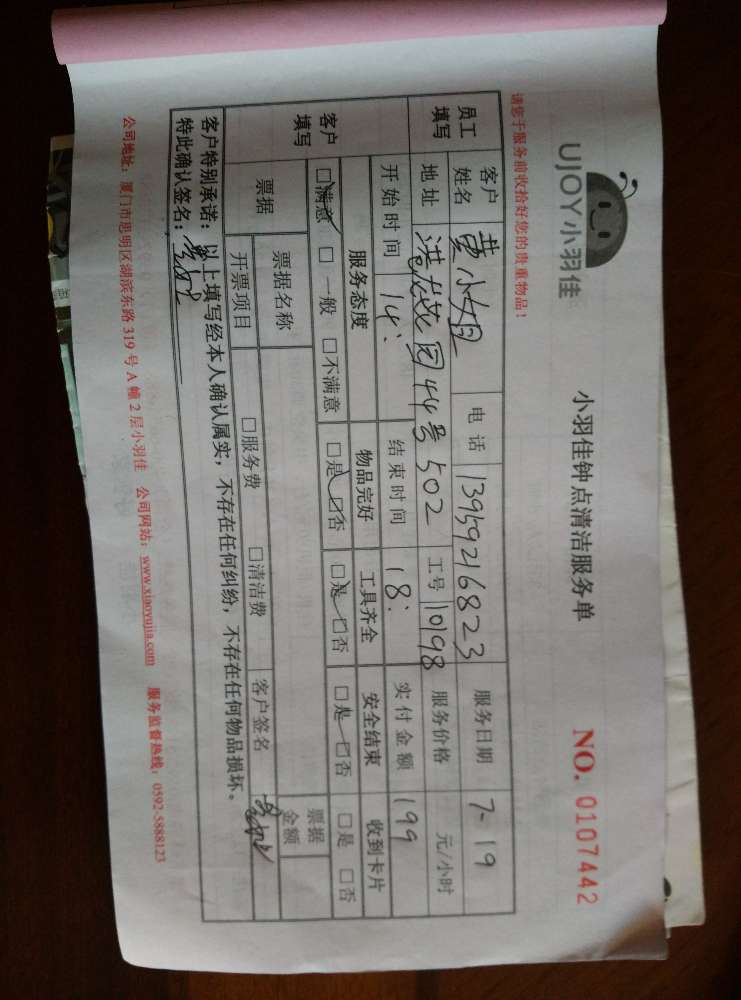 UJOY小羽佳
小羽佳钟点清洁服务单
NO. 0107442
请您于服务前收拾好您的贵重物品！
员工填写
客户姓名 黄小姐 电话 13959216823 服务日期 7-19
地址 花园44号502 工号 10198 服务价格 元/小时
开始时间 14: 结束时间 18: 实付金额 199
客户填写
服务态度 物品完好 工具齐全 安全结束 收到卡片
□满意 □一般 □不满意 □是 □否 □是 □否 □是 □否 □是 □否
票据 票据名称 票据金额
开票项目 □服务费 □清洁费 客户签名
客户特别承诺：以上填写经本人确认属实，不存在任何纠纷，不存在任何物品损坏。
特此确认签名：
公司地址：厦门市思明区湖滨东路319号A幢2层小羽佳 公司网站：www.xiaoyujia.com 服务监督热线：0592-5888123